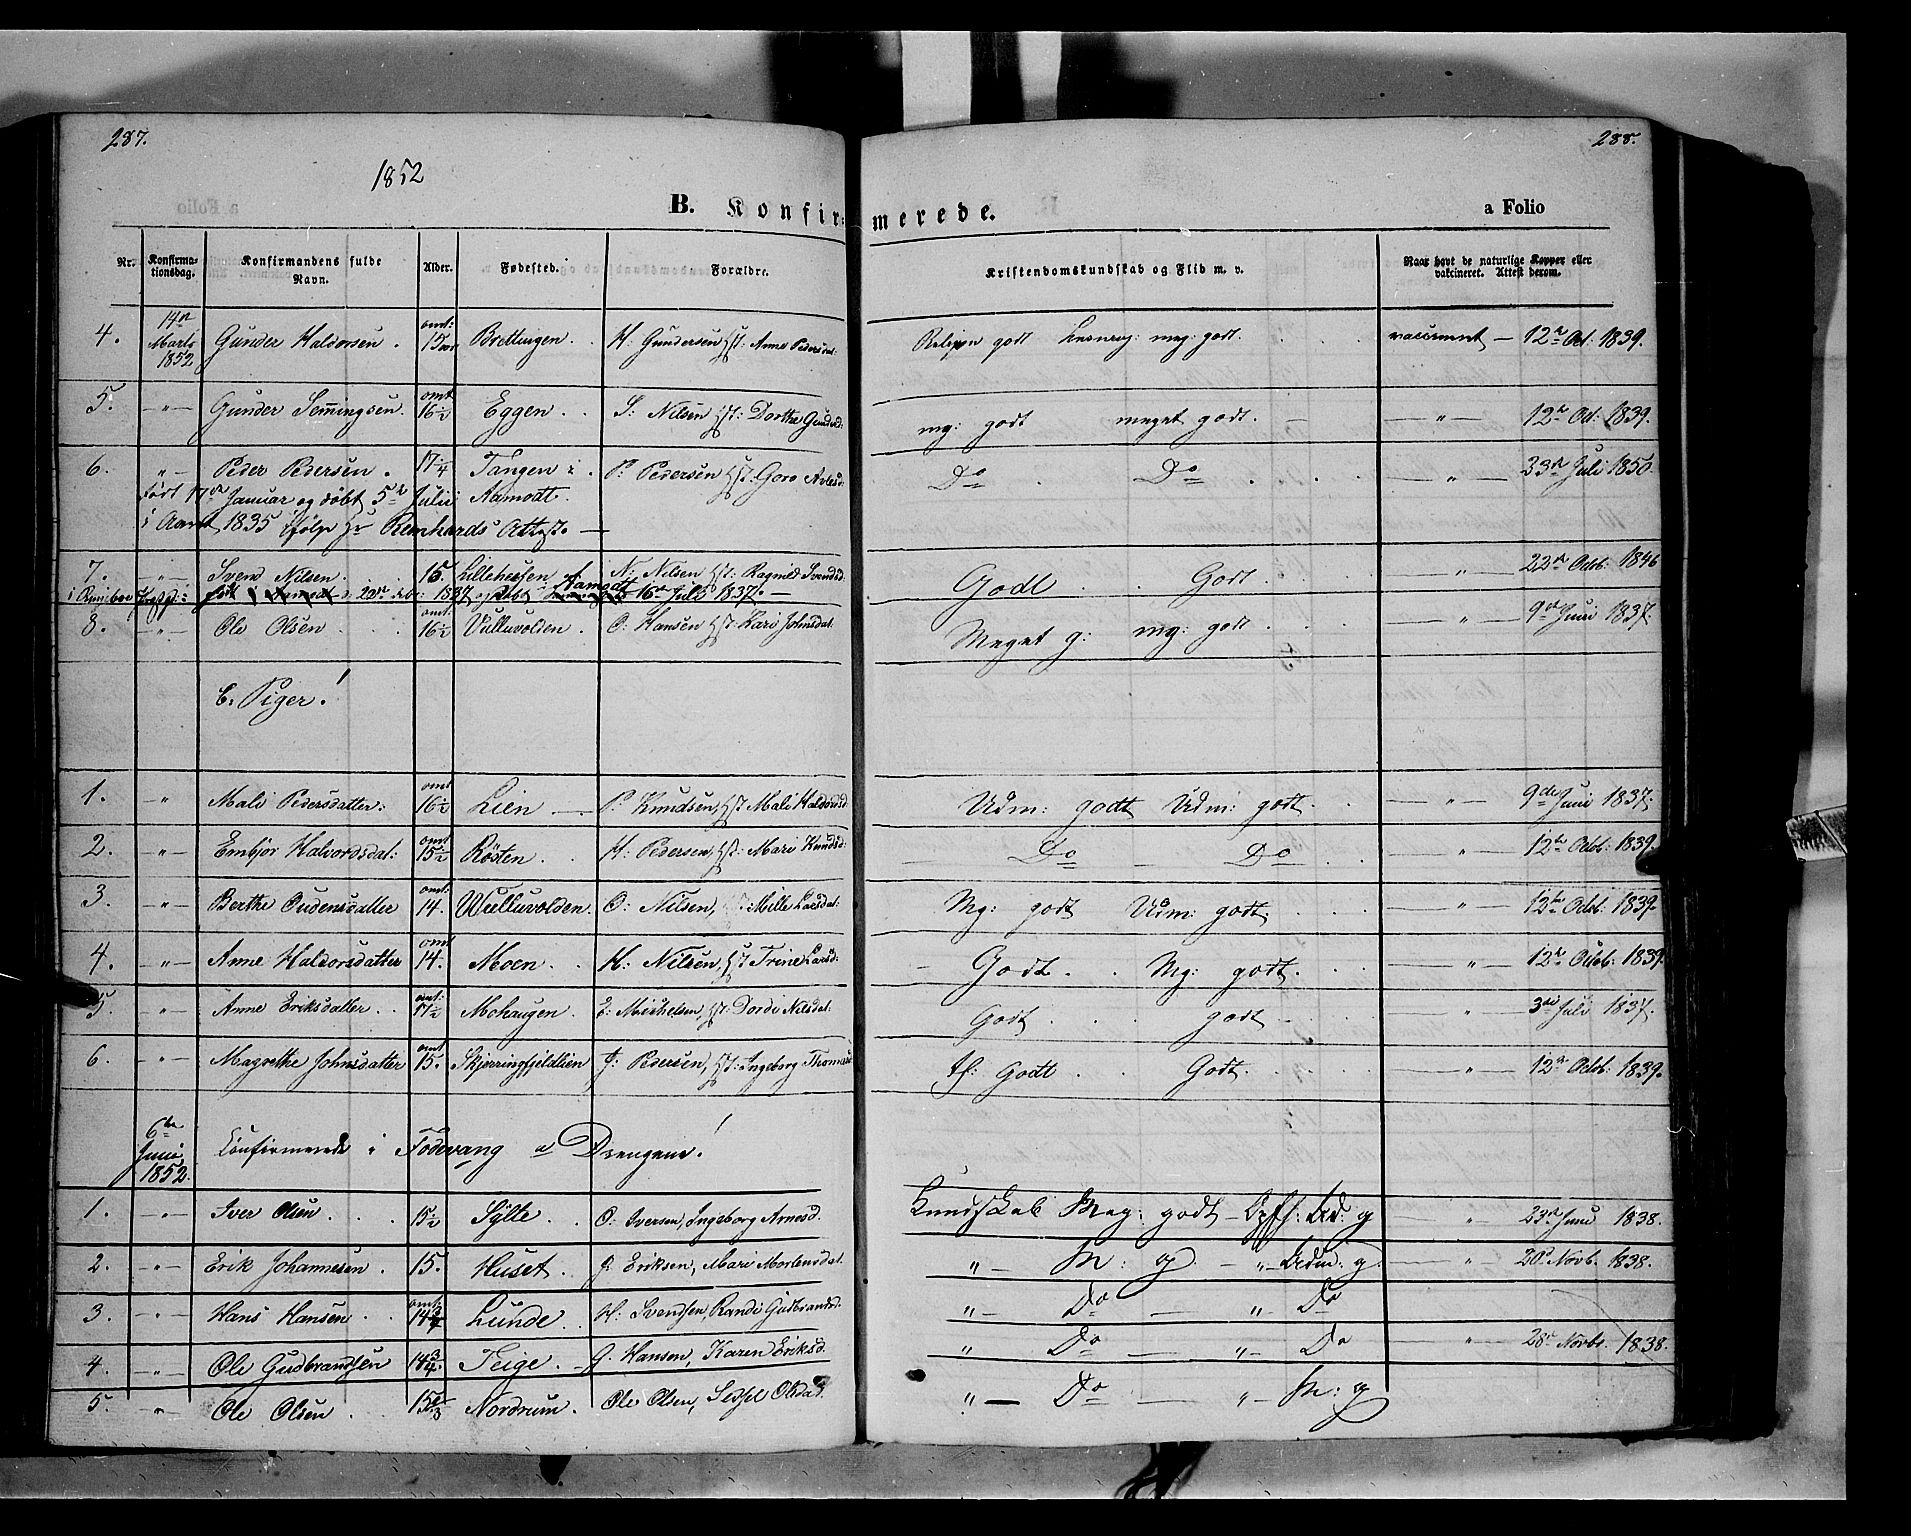 287.
288.
1852
B. Konfirmerede.
a Folio
Nr. Konfirmationsdag. Konfirmandens fulde Navn. Alder. Fødested. Forældre. Kristendomskundskab og Flid m. v. Naar havt de naturlige Kopper eller vakcineret. Attest derom.
4. 14de Marts 1852 Gunder Haldorsen. omt: 15 aar Brettingen. H. Gundersen, Hst: Anne Pedersdat: Religion godt mg: godt. vaccineret — 12te Oct: 1839.
5. —"— Gunder Semingsen. omt 16½ Eggen. S: Nilsen Hst: Dorthe Gundersd: mg: godt meget godt. —"— 12te Oct: 1839.
6. "— Peder Pedersen. 17¼ Tangen i P: Pedersen Hst: Goro Do Do —"— 23de Juli 1850.
født 17de Januar og døbt 5te Julii Aamodt.
i Aaret 1835 ifølge Hr Attest. —
7. —"— Svend Nilsen. 15. Lillehessen Aamodt N: Nilsen Hst: Ragnild Svendsd: Godt Godt —"— 22de Octb: 1846
1837 16de Juli 1837. —
8. —"— Ole Olsen omt 16½ Vulluvolden. O: Hansen Hst: Kari Johnsdat: Meget g: mg: godt —"— 9de Juni 1837.
b. Piger!
1. "— Mali Pedersdatter: omt 16½ Lien — P: Knudsen, Hst Mali Haldorsd: Udm: godt Udm: godt. —"— 9de Juni 1837.
2. "— Embjør Halvordsdat: omt 15½ Røsten. H: Pedersen, Hst: Mari Knudsd: Do — Do —"— 12te Octb: 1839.
3. "— Berthe Oudensdatter omt: 14. Wulluvolden. O: Nilsen, Hst: Mille Larsdat: Mg: godt Udm: godt. —"— 12te Octb: 1839.
4. —"— Anne Haldorsdatter omt 14. Moen. H: Nilsen, Hst Trine Larsd: Godt. Mg: godt. —"— 12te Octb: 1839.
5. "— Anne Eriksdatter. omt: 17½ Mohaugen. E: Mikkelsen, Hst: Dordi Nilsdat: Godt godt —"— 3die Juli 1837.
6. "— Magrethe Johnsdatter omt 15. Skjerringfjeldlien J: Pedersen, Hst: Ingeborg Thomasd tf: Godt Godt. —"— 12te Octb: 1839.
6te Juni 1852. Konfirmerede i Fodevang a Drengene!
1. —"— Iver Olsen. 15½ Sylte. O: Iversen, Ingeborg Arnesd. Kundskab Meg: godt — Opf: Ud: g " 23de Juni 1838.
2. —"— Erik Johannesen. 15. Huset. J: Eriksen, Mari Mortensdat. "— M: g. — "— Udm: g. —"— 20de Novb. 1838.
3. —"— Hans Hansen omt: 14¾ Lunde. H: Svendsen, Randi Gudbrandsd. "— Do — "— Do
4. —"— Ole Gudbrandsen 14¾. Teige. G. Hansen, Karen Eriksd. " Do "— Do " 28de Novb. 1838.
5. " Ole Olsen Nordrum. Ole Olsen, Sidsel Olsdat. "— Do — "— M: g